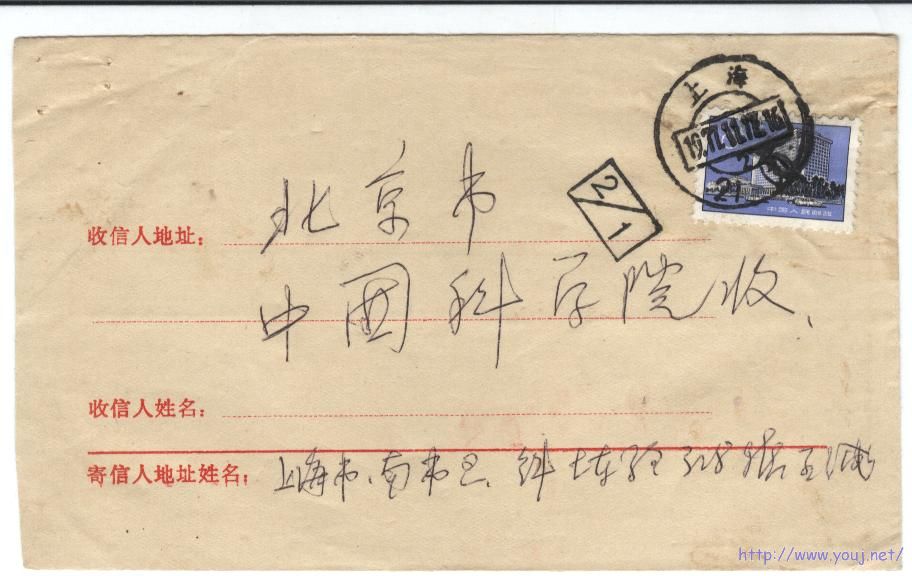 上海
1977.11.17.16
21
中国人民邮政
2/1
收信人地址：北京市
中国科学院收、
收信人姓名：
寄信人地址姓名：上海市、南市区、
http://www.youj.net/